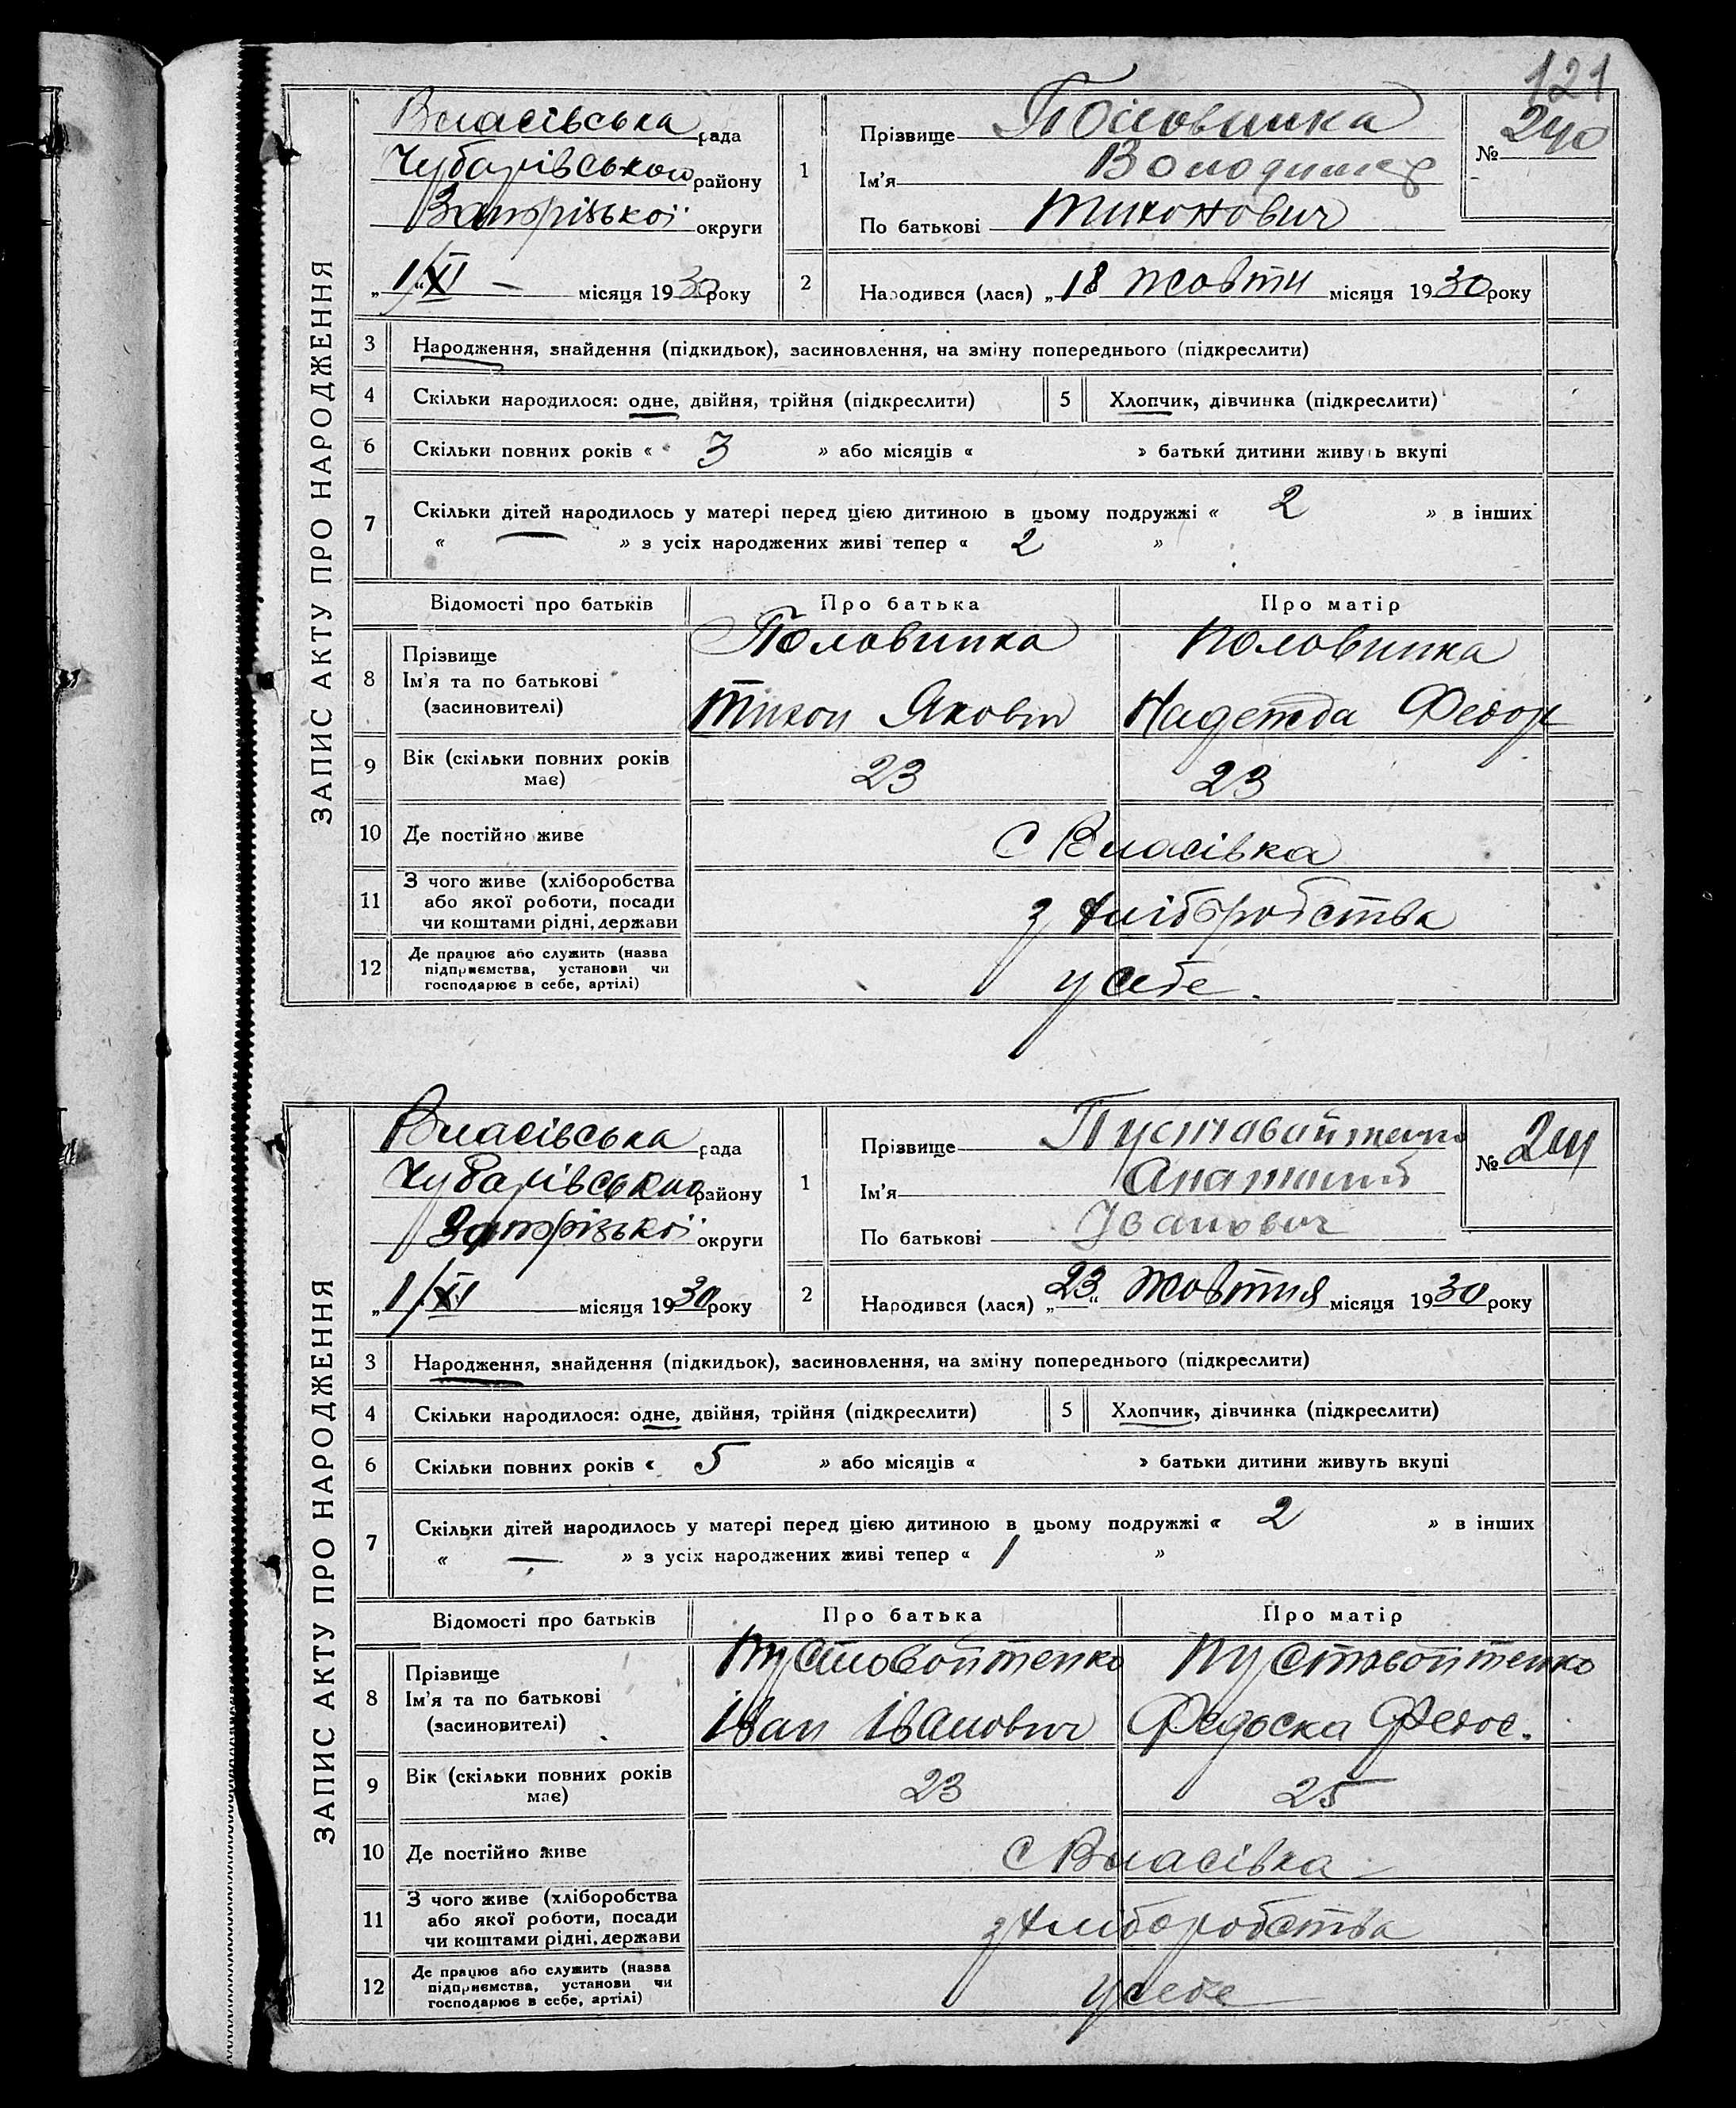 121
ЗАПИС АКТУ ПРО НАРОДЖЕННЯ
Власівська рада
Чубарівського району
Запорізької округи
„1/XI — місяця 1930 року
1 Прізвище Половинка
Ім'я Володимер
По батькові Тихонович
№ 240
2 Народився (лася) „18 жовтн місяця 1930 року
3 Народження, знайдення (підкидьок), засиновлення, на зміну попереднього (підкреслити)
4 Скільки народилося: одне, двійня, трійня (підкреслити) 5 Хлопчик, дівчинка (підкреслити)
6 Скільки повних років « 3 » або місяців « » батьки дитини живуть вкупі
7 Скільки дітей народилось у матері перед цією дитиною в цьому подружжі « 2 » в інших
« — » з усіх народжених живі тепер « 2 »
Відомості про батьків Про батька Про матір
8 Прізвище Половинка Половинка
Ім'я та по батькові
(засиновителі) Тихон Яковл Надежда Федор
9 Вік (скільки повних років
має) 23 23
10 Де постійно живе С Власівка
11 З чого живе (хліборобства
або якої роботи, посади
чи коштами рідні, держави з хліборобства
12 Де працює або служить (назва
підприємства, установи чи
господарює в себе, артілі) у себе.
ЗАПИС АКТУ ПРО НАРОДЖЕННЯ
Власівська рада
Чубарівського району
Запорізької округи
„1/XI місяця 1930 року
1 Прізвище Пустовойтенко
Ім'я Анатолий
По батькові Іванович
№ 241
2 Народився (лася) „23“ жовтня місяця 1930 року
3 Народження, знайдення (підкидьок), засиновлення, на зміну попереднього (підкреслити)
4 Скільки народилося: одне, двійня, трійня (підкреслити) 5 Хлопчик, дівчинка (підкреслити)
6 Скільки повних років « 5 » або місяців « » батьки дитини живуть вкупі
7 Скільки дітей народилось у матері перед цією дитиною в цьому подружжі « 2 » в інших
« — » з усіх народжених живі тепер « 1 »
Відомості про батьків Про батька Про матір
8 Прізвище Пустовойтенко Пустовойтенко
Ім'я та по батькові
(засиновителі) Іван Іванович Федоска Федос.
9 Вік (скільки повних років
має) 23 25
10 Де постійно живе С Власівка
11 З чого живе (хліборобства
або якої роботи, посади
чи коштами рідні, держави з хліборобства
12 Де працює або служить (назва
підприємства, установи чи
господарює в себе, артілі) у себе